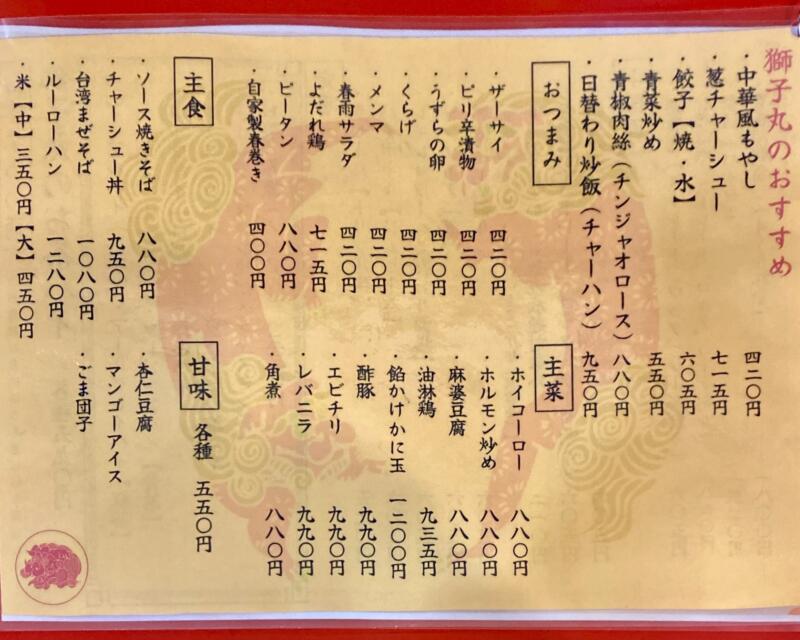 獅子丸のおすすめ
・中華風もやし 四二〇円
・葱チャーシュー 七一五円
・餃子【焼・水】 六〇五円
・青菜炒め 五五〇円
・青椒肉絲（チンジャオロース） 八八〇円
・日替わり炒飯（チャーハン） 九五〇円
おつまみ
・ザーサイ 四二〇円
・ピリ辛漬物 四二〇円
・うずらの卵 四二〇円
・くらげ 四二〇円
・メンマ 四二〇円
・春雨サラダ 四二〇円
・よだれ鶏 七一五円
・ピータン 八八〇円
・自家製春巻き 四〇〇円
主菜
・ホイコーロー 八八〇円
・ホルモン炒め 八八〇円
・麻婆豆腐 八八〇円
・油淋鶏 九三五円
・餡かけかに玉 一二〇〇円
・酢豚 九九〇円
・エビチリ 九九〇円
・レバニラ 九九〇円
・角煮 八八〇円
主食
・ソース焼きそば 八八〇円
・チャーシュー丼 九五〇円
・台湾まぜそば 一〇八〇円
・ルーローハン 一二八〇円
・米【中】三五〇円【大】四五〇円
甘味 各種 五五〇円
・杏仁豆腐
・マンゴーアイス
・ごま団子